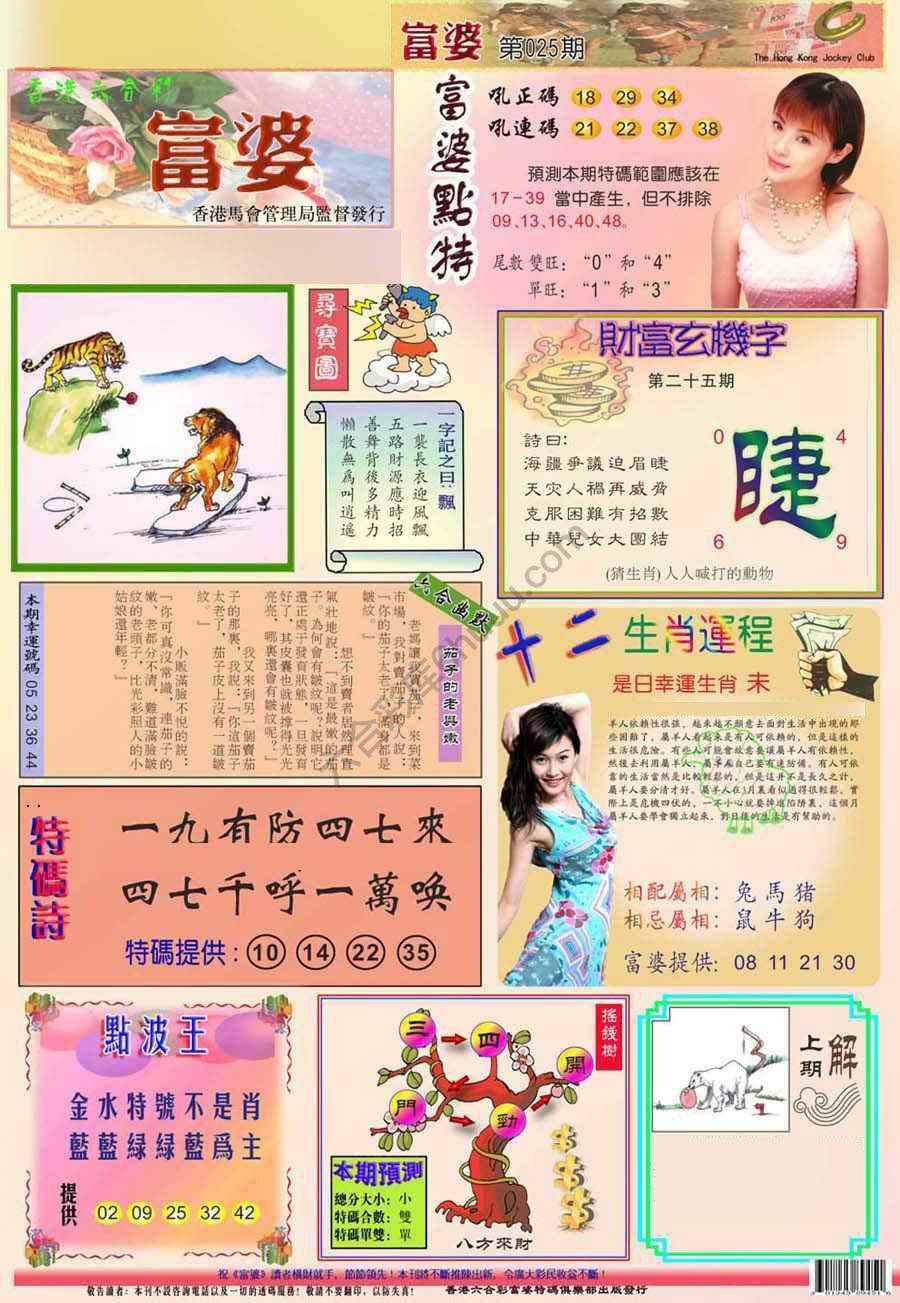 富婆 第025期
The Hong Kong Jockey Club
香港六合彩
富婆
香港馬會管理局監督發行
富婆點特
吼正碼 18 29 34
吼連碼 21 22 37 38
預測本期特碼範圍應該在
17-39 當中產生，但不排除
09、13、16、40、48。
尾數 雙旺：“0”和“4”
單旺：“1”和“3”
尋寶圖
一字記之曰：飄
一襲長衣迎風飄
五路財源應時招
善舞背後多精力
懶散無為叫逍遙
財富玄機字
第二十五期
詩曰：
海疆爭議迫眉睫
天灾人禍再威脅
克服困難有招數
中華兒女大團結
0 4
睫
6 9
(猜生肖) 人人喊打的動物
本期幸運號碼 05 23 36 44
六合幽默
茄子的老與嫩
老媽讓我買茄子，來到菜
市場，我對賣茄子的人說：
「你的茄子太老了，滿是
皺紋。」
想不到賣者居然理直
氣壯地說：「這是最嫩的茄
子。為何會有皺紋呢？說明它
還正處于發育狀態，一旦發育
好了，其皮囊也就被撐得光光
亮亮，哪裏還會有皺紋呢？」
我又來到另一個賣茄
子的那裏，我說：「你這茄子
太老了，茄子皮上沒有一道皺
紋。」
小販滿臉不悅的說：
「你可真沒常識，連茄子的
嫩、老都分不清！難道滿臉皺
紋的老頭子，比光彩照人的小
姑娘還年輕？」
十二生肖運程
是日幸運生肖 未
羊人依賴性很强，越來越不願意去面對生活中出現的那
些困難了，屬羊人看起來是有人可依賴的，但是這樣的
生活很危險。有些人可能會故意要讓屬羊人有依賴性，
然後去利用屬羊人，屬羊人自己要有速防備。有人可依
靠的生活當然是比較輕鬆的，但是這并不是長久之計，
屬羊人要分清才好。屬羊人在3月裏看似過得很輕鬆，實
際上是危機四伏的，一不小心就要掉進陷阱裏，這個月
屬羊人要學會獨立起來，對日後的生活是有幫助的。
相配屬相：兔 馬 猪
相忌屬相：鼠 牛 狗
富婆提供：08 11 21 30
特碼詩
一九有防四七來
四七千呼一萬唤
特碼提供：10 14 22 35
點波王
金水特號不是肖
藍藍緑緑藍爲主
提供 02 09 25 32 42
搖錢樹
三 四 開
門 勁
本期預測
總分大小：小
特碼合數：雙
特碼單雙：單
八方來財
上期解
祝《富婆》讀者橫財就手，節節領先！本刊將不斷推陳出新，令廣大彩民收益不斷！
敬告讀者：本刊不設咨詢電話以及一切的透碼服務！敬請不要翻印，以防失真！ 香港六合彩富婆特碼俱樂部出版發行